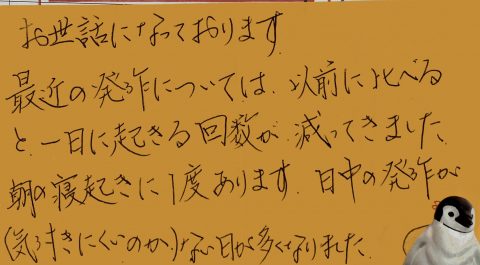 お世話になっております
最近の発作については、以前に比べる
と、一日に起きる回数が、減ってきました。
朝の寝起きに1度あります。日中の発作が
(気づきにくいのか)ない日が多くなりました。